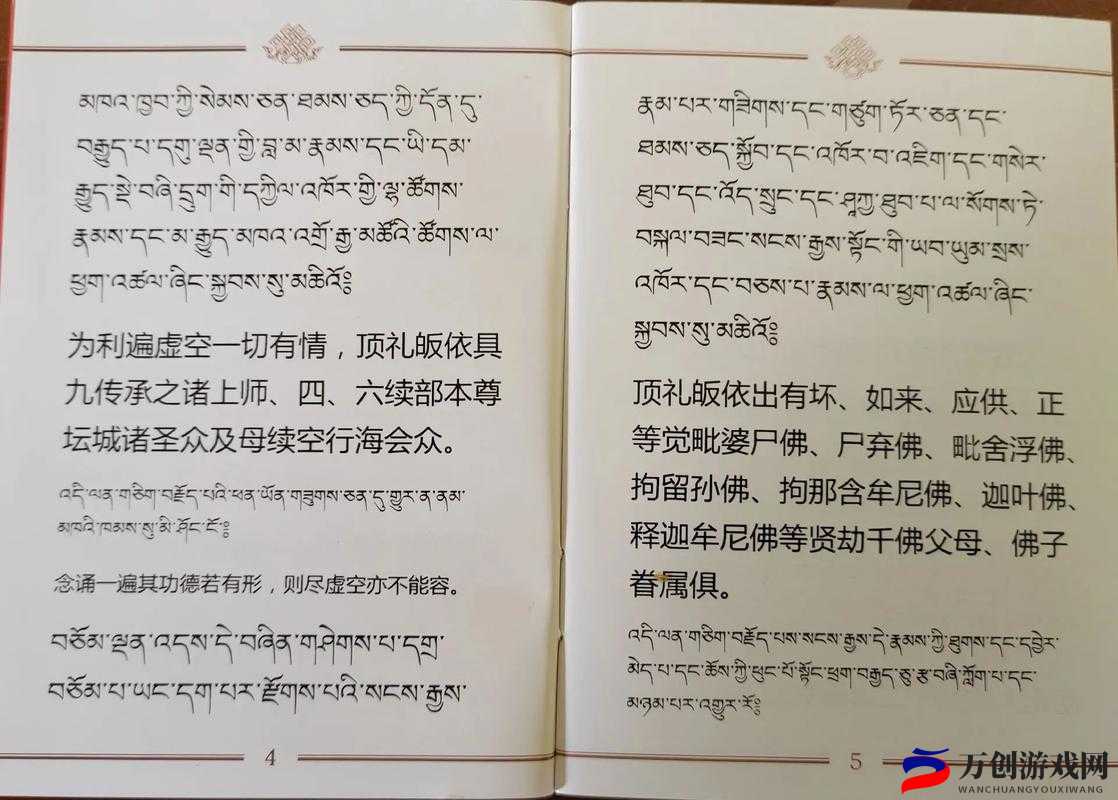 མཁའ་ཁྱབ་ཀྱི་སེམས་ཅན་ཐམས་ཅད་ཀྱི་དོན་དུ་
བརྒྱུད་པ་དགུ་ལྡན་གྱི་བླ་མ་རྣམས་དང་ཡི་དམ་
རྒྱུད་སྡེ་བཞི་དྲུག་གི་དཀྱིལ་འཁོར་གྱི་ལྷ་ཚོགས་
རྣམས་དང་མ་རྒྱུད་མཁའ་འགྲོ་རྒྱ་མཚོའི་ཚོགས་ལ་
ཕྱག་འཚལ་ཞིང་སྐྱབས་སུ་མཆིའོ༔
为利遍虚空一切有情，顶礼皈依具
九传承之诸上师、四、六续部本尊
坛城诸圣众及母续空行海会众。
འདི་ལན་གཅིག་བརྗོད་པའི་ཕན་ཡོན་གཟུགས་ཅན་དུ་གྱུར་ན་ནམ་
མཁའི་ཁམས་སུ་མི་ཤོང་ངོ་༔
念诵一遍其功德若有形，则尽虚空亦不能容。
བཅོམ་ལྡན་འདས་དེ་བཞིན་གཤེགས་པ་དགྲ་
བཅོམ་པ་ཡང་དག་པར་རྫོགས་པའི་སངས་རྒྱས་
4
རྣམ་པར་གཟིགས་དང་གཙུག་ཏོར་ཅན་དང་
ཐམས་ཅད་སྐྱོབ་དང་འཁོར་བ་འཇིག་དང་གསེར་
ཐུབ་དང་འོད་སྲུང་དང་ཤཱཀྱ་ཐུབ་པ་ལ་སོགས་ཏེ་
བསྐལ་བཟང་སངས་རྒྱས་སྟོང་གི་ཡབ་ཡུམ་སྲས་
འཁོར་དང་བཅས་པ་རྣམས་ལ་ཕྱག་འཚལ་ཞིང་
སྐྱབས་སུ་མཆིའོ༔
顶礼皈依出有坏、如来、应供、正
等觉毗婆尸佛、尸弃佛、毗舍浮佛、
拘留孙佛、拘那含牟尼佛、迦叶佛、
释迦牟尼佛等贤劫千佛父母、佛子
眷属俱。
འདི་ལན་གཅིག་བརྗོད་པས་སངས་རྒྱས་དེ་རྣམས་ཀྱི་ཐུགས་དང་དབྱེར་
མེད་པ་དང་ཆོས་ཀྱི་ཕུང་པོ་སྟོང་ཕྲག་བརྒྱད་ཅུ་རྩ་བཞི་ཀློག་པ་དང་
མཉམ་པར་འགྱུར་རོ༔
5
万创游戏网
WANCHUANGYOUXIWANG